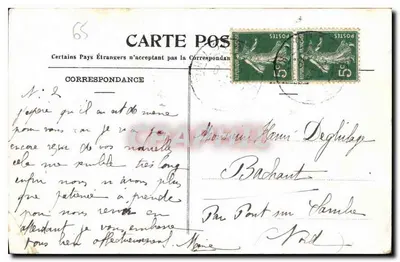 65
CARTE POS
Certains Pays Étrangers n'acceptant pas la Correspondan
CORRESPONDANCE
POSTES
5c
POSTES
5c
N. 2
J'espère qu'il en est de même
pour vous car je
encore reçue de vos nouvelles
cela me semble très long
enfin nous n'avons plus
que patience à prendre
pour nous revoir en
attendant je vous embrasse
tous bien affectueusement Maria
Monsieur Henri Deghilage
Bachant
Par Pont sur Sambre
Nord